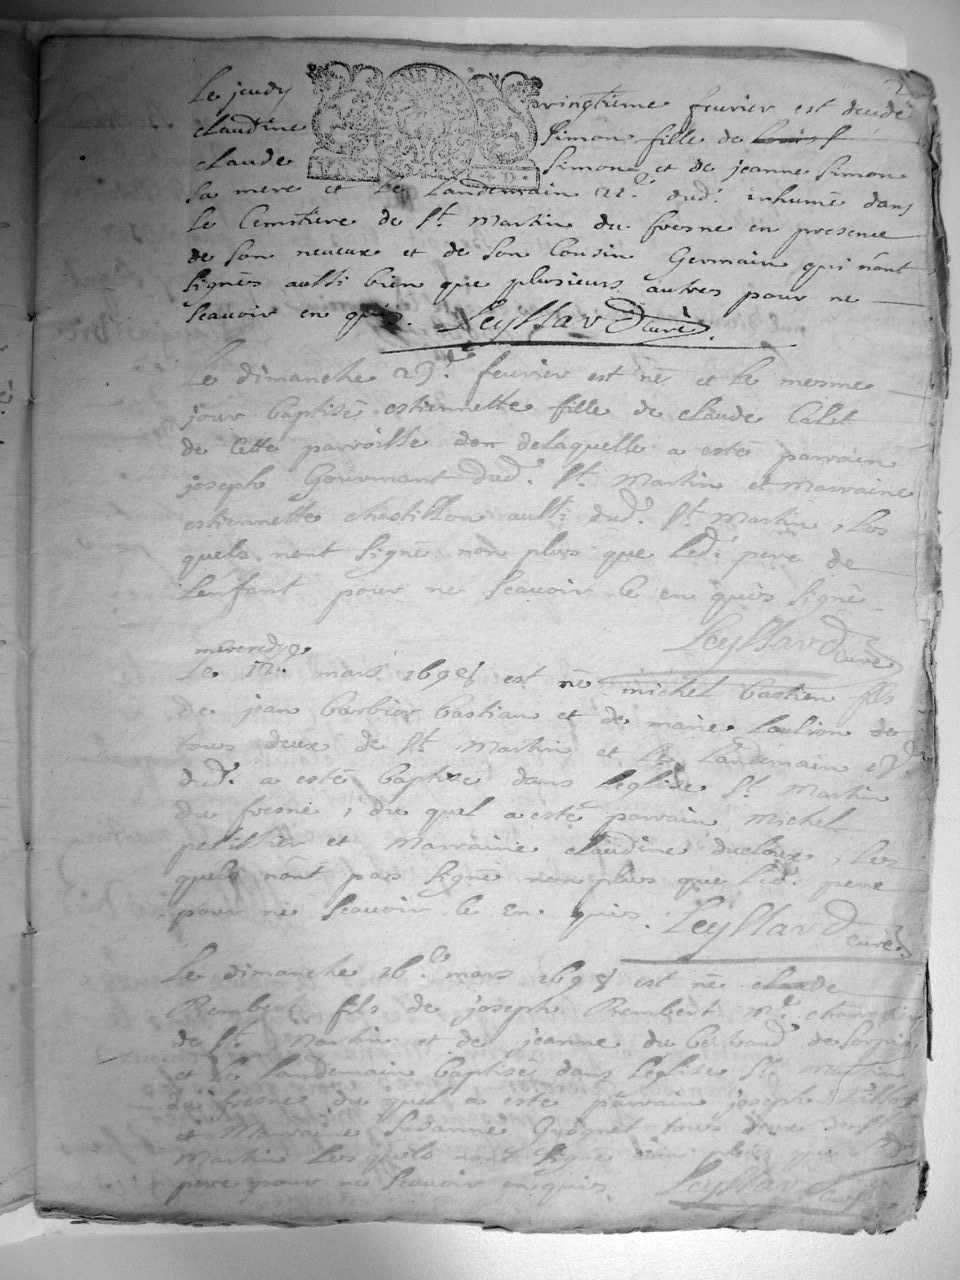 2
Le jeudy vingtiéme feurier est decedé
claudine Simon fille de
claude Simon et de jeanne Simon
sa mere et le Landemain 21e. dud. inhumé dans
le Cemitiere de St. Martin du fresne en presence
de son neueux et de son Cousin Germain qui n'ont
signés aussi bien que plusieurs autres pour ne
scauoir en quis. Leyssard curé.
Le dimanche 23e. feurier est né et le mesme
jour baptisé estiennette fille de claude Calet
de cette parroisse delaquelle a esté parrain
joseph Gourmant dud. St. Martin et Marraine
estiennette chastillon aussi dud. St. Martin, les
quels nont signé non plus que led. pere de
Lenfant pour ne scauoir le en quis signé
Leyssard curé
mercredy
Le 12e. mars 1698 est né michel bastien fils
de jean barbier bastian et de marie de
tous deux de St. Martin et le Landemain
dud. a esté baptize dans leglise St. Martin
du fresne, du quel a esté parrain Michel
et Marraine claudine ducloux, les
quels nont pas signé non plus que led. pere
pour ne scauoir le en quis. Leyssard
curé.
Le dimanche 16e. mars 1698 est né claude
Rembert fils de joseph Rembert Me.
de St. Martin et de jeanne du
et le landemain baptisé dans leglise St. Martin
du fresne du quel a esté parrain joseph
et Marraine Susanne tous deux de St.
Martin les quels nont signé non plus que
pere pour ne scauoir enquis. Leyssard curé